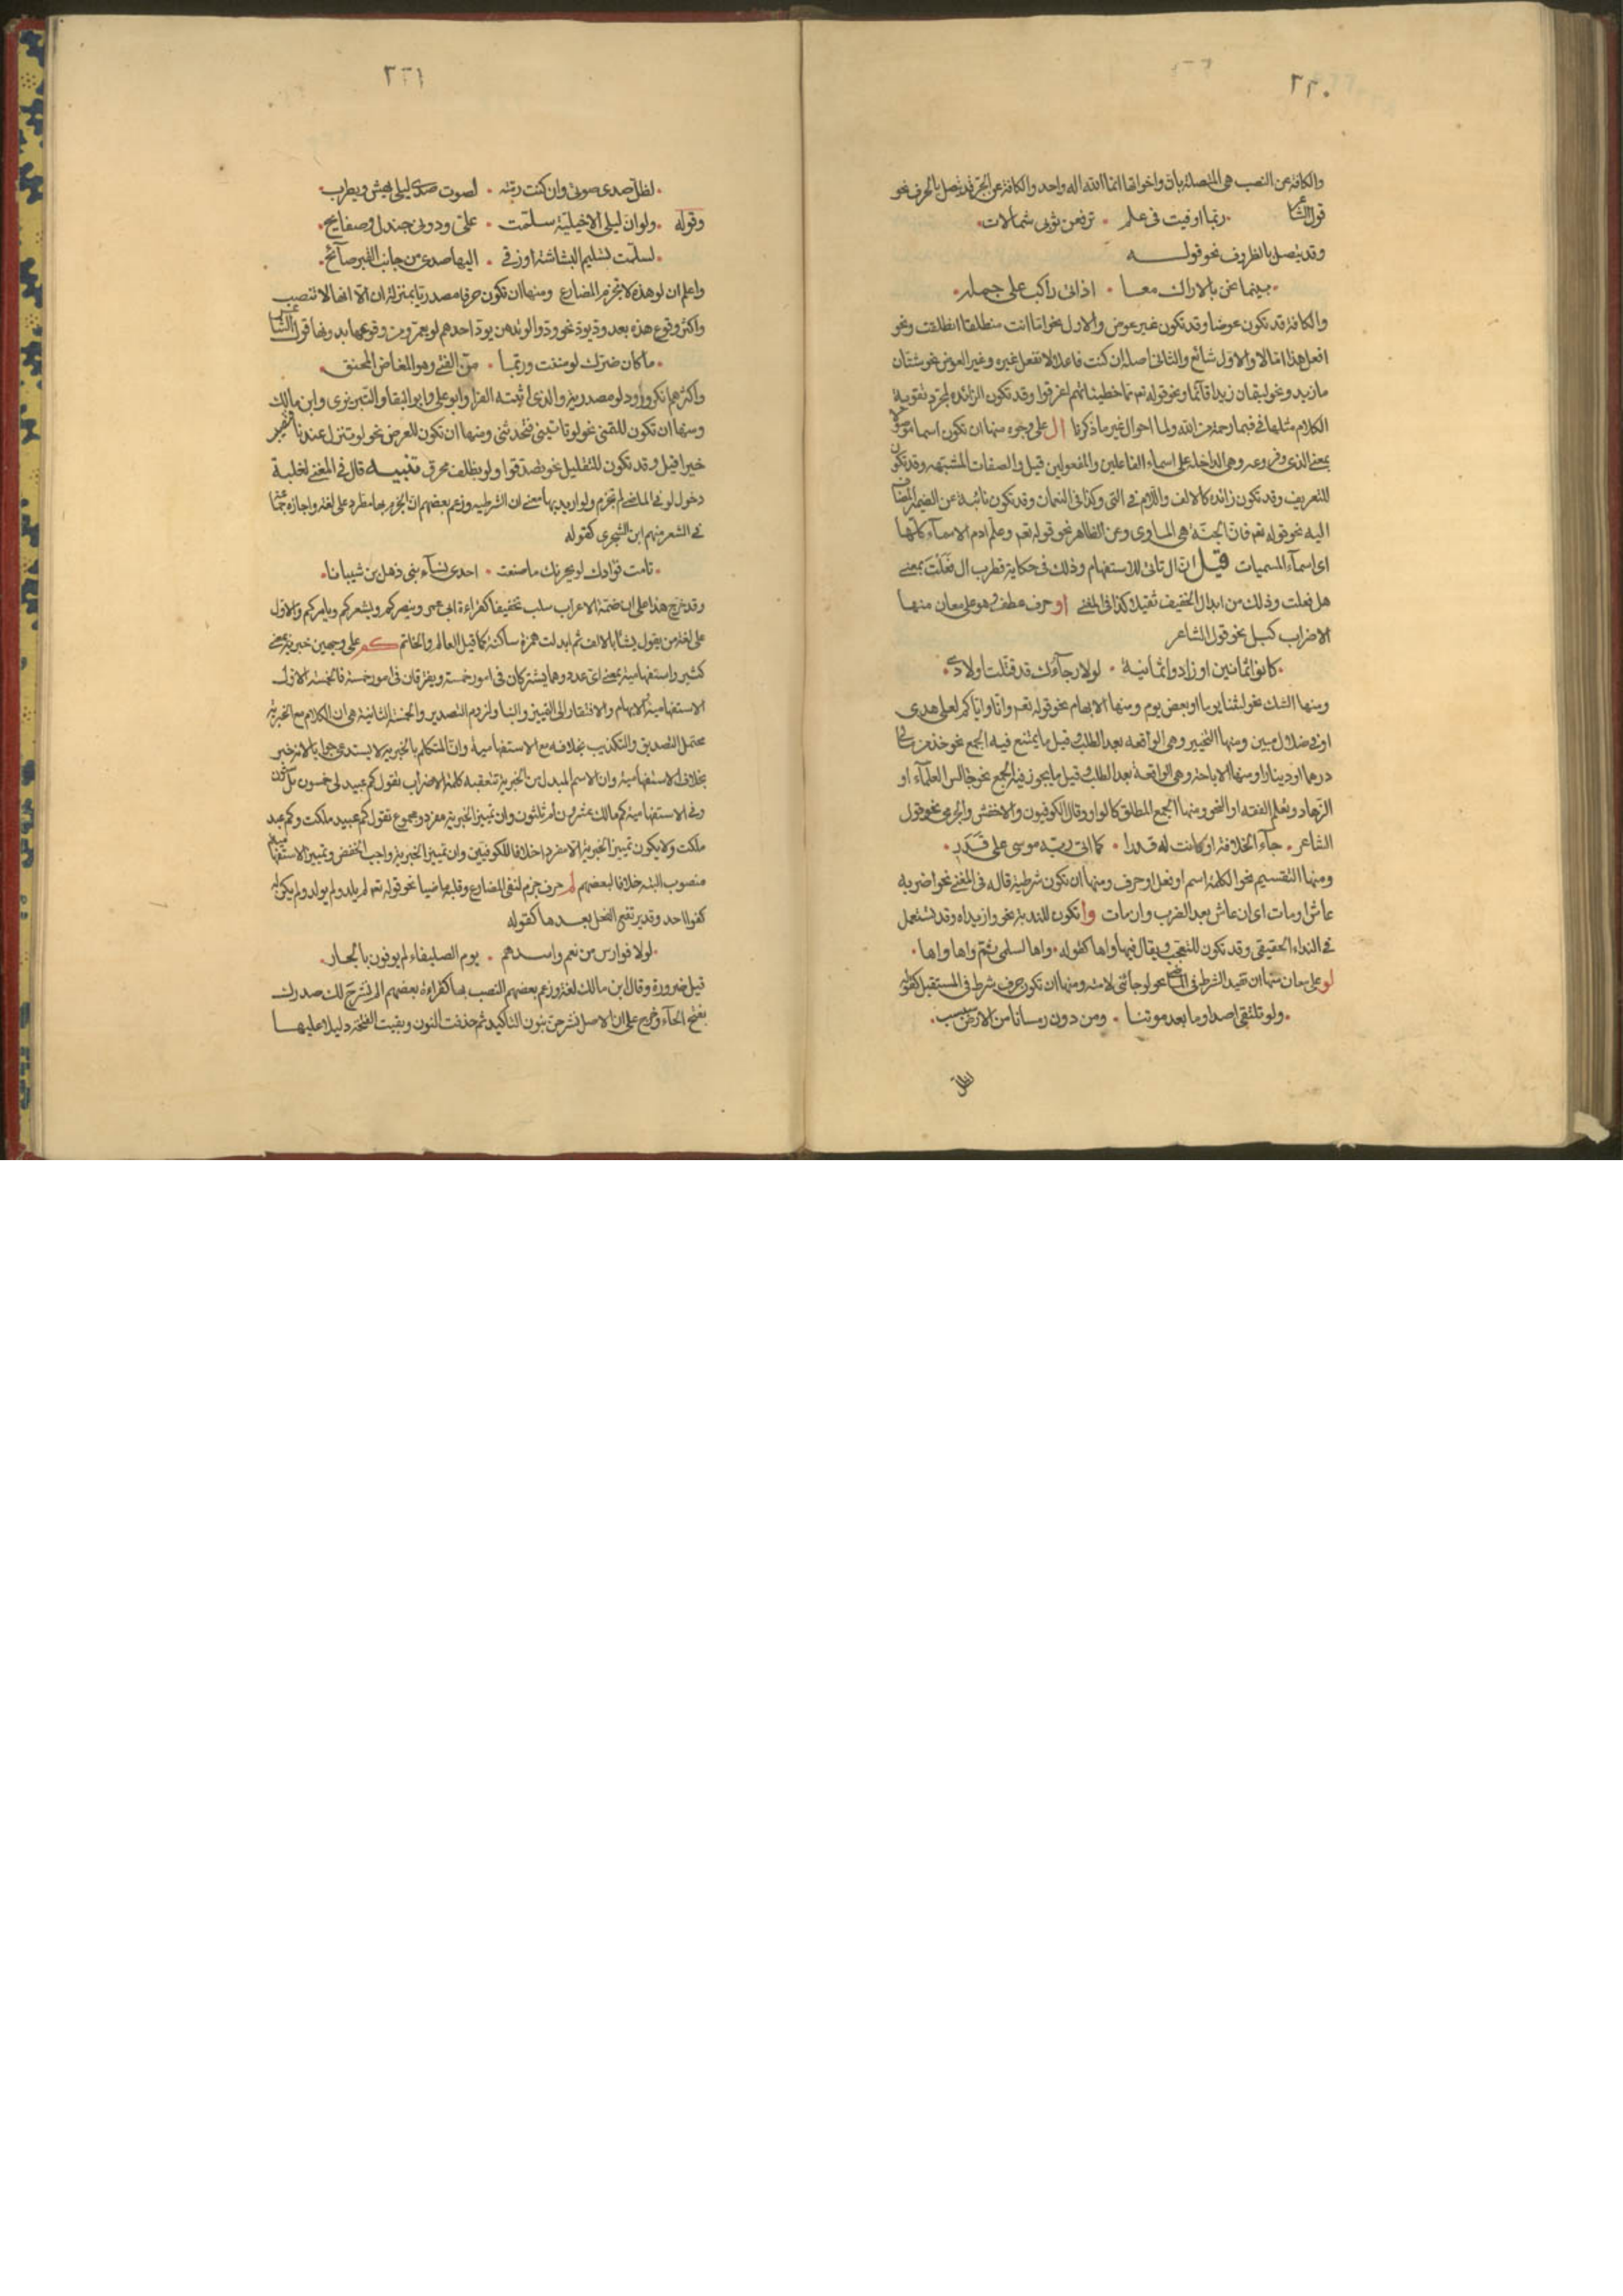 ٢٢٠
والكافة عن النصب هي المتصلة بان واخواتها انما الله اله واحد والكافة عن الجر قد تتصل بالحرف نحو
قول الشاعر ربما اوفيت فى علم ٠ ترفعن ثوبى شمالات
وقد يتصل بالظروف نحو قولـــه
بينما نحن بالاراك معا ٠ اذ اتى راكب على جمله
والكافة قد تكون عوضا وقد تكون غير عوض والاول نحو اما انت منطلقا انطلقت ونحو
افعل هذا امالا والاول شائع والثانى اصله ان كنت فاعلا لا تفعل غيره وغير العوض نحو شتان
ما زيد ونحو ليقان زيدا قائما ونحو قوله تعم مما خطيئاتهم اغرقوا وقد تكون الزائدة لمجرد تقوية
الكلام مثلها فى فبما رحمة من الله ولما احوال غير ما ذكرنا ال على وجوه منها ان تكون اسما موصولا
بمعنى الذى وفروعه وهى الداخلة على اسماء الفاعلين والمفعولين قيل والصفات المشبهه وقد تكون
للتعريف وقد تكون زائدة كالالف واللام فى التى وكذا فى النعمان وقد تكون نائبة عن الضمير المضاف
اليه نحو قوله تعم فان الجنة هى الماوى وعن الظاهر نحو قوله تعم وعلم ادم الاسماء كلها
اى اسماء المسميات قيل ان ال تاتى للاستفهام وذلك فى حكاية قطرب ال فعلت بمعنى
هل فعلت وذلك من ابدال الخفيف ثقيلا كذا فى المغنى او حرف عطف وهو على معان منها
الاضراب كبل نحو قول الشاعر
كانوا ثمانين او زادوا ثمانية ٠ لولا رجاؤك قد قتلت اولادى
ومنها الشك نحو لبثنا يوما او بعض يوم ومنها الابهام نحو قوله تعم وانا واياكم لعلى هدى
او فى ضلال مبين ومنها التخيير وهى الواقعه بعد الطلب وقيل ما يمتنع فيه الجمع نحو خذ من مالى
درهما او دينارا ومنها الاباحة وهى الواقعة بعد الطلب وقيل ما يجوز فيه الجمع نحو جالس العلماء او
الزهاد وتعلم الفقه او النحو ومنها الجمع المطلق كالواو وقال الكوفيون والاخفش والجرمى نحو قول
الشاعر ٠ جاء الخلافة او كانت له قدرا ٠ كما اتى ربه موسى على قدر
ومنها التقسيم نحو الكلمة اسم او فعل او حرف ومنها ان تكون شرطية قاله فى المغنى نحو اضربه
عاش او مات اى ان عاش بعد الضرب وان مات وا تكون للندبة نحو وازيداه وقد تستعمل
فى النداء الحقيقى وقد تكون للتعجب ويقال فيها واها كقوله ٠ واها لسلمى ثم واها واها
لو على معان منها ان تقيد الشرط فى الماضى نحو لو جائنى لامته ومنها ان تكون حرف شرط فى المستقبل كقوله
ولو تلتقى اصداوما بعد موتنا ٠ ومن دون رمسانا من الارض سبسب
لظل
٢٢١
لظل صدى صوتى وان كنت رمة ٠ لصوت صدى ليلى يهش ويطرب
وقوله ولو ان ليلى الاخيلية سلمت ٠ على ودونى جندل وصفايح
لسلمت تسليم البشاشة او زقى ٠ اليها صدى من جانب القبر صائح
واعلم ان لو هذه لا تجزم المضارع ومنها ان تكون حرفا مصدريا بمنزلة ان الا انها لا تنصب
واكثر وقوع هذه بعد ود يود نحو ودوا لو تدهن يود احدهم لو يعمر ومن وقوعها بدونها قول الشاعر
ما كان ضرك لو مننت وربما ٠ من الفتى وهو المغاض المحنق
واكثرهم انكر ورود لو مصدرية والذى اثبته الفرا وابو على وابو البقا والتبريزى وابن مالك
ومنها ان تكون للتمنى نحو لو تاتينى فتحدثنى ومنها ان تكون للعرض نحو لو تنزل عندنا فتصيب
خيرا قيل وقد تكون للتقليل نحو تصدقوا ولو بظلف محرق تنبيـه قال فى المغنى لغلبة
دخول لو فى الماضى لم تجزم ولو اريد بها معنى ان الشرطيه وزعم بعضهم ان الجزم بها مطرد على لغة واجازه جماعة
فى الشعر منهم ابن الشجرى كقوله
تامت فؤادك لو يحزنك ما صنعت ٠ احدى نساء بنى ذهل بن شيبانا
وقد خرج هذا على ان ضمة الاعراب سلب تخفيفا كقراءة ابى عمرو وينصركم ويشعركم ويامركم والاول
على لغة من يقول يشا بالالف ثم ابدلت همزة ساكنة كما قيل العالم والخاتم كم على وجهين خبرية بمعنى
كثير واستفهامية بمعنى اى عدد وهما يشتركان فى امور خمسة ويفترقان فى امور خمسة فالخمسة الاول
الاستفهامية الابهام والافتقار الى التمييز والبنا ولزوم التصدير والخمسة الثانية هى ان الكلام مع الخبرية
محتمل التصديق والتكذيب بخلافه مع الاستفهامية وان المتكلم بالخبرية لا يستدعى جوابا لانه مخبر
بخلاف الاستفهامية وان الاسم المبدل من الخبرية تتعقبه كلمة الاضراب تقول كم عبيد لى خمسون بل ثلثون
وفى الاستفهامية كم مالك عشرون ام ثلثون وان تمييز الخبرية مفرد ومجموع تقول كم عبيد ملكت وكم عبد
ملكت ولا يكون تمييز الخبرية الا مفردا خلافا للكوفيين وان تمييز الخبرية واجب الخفض وتمييز الاستفهامية
منصوب البته خلافا لبعضهم لم حرف جزم لنفى المضارع وقلبه ماضيا نحو قوله تعم لم يلد ولم يولد ولم يكن له
كفوا احد وقد يرتفع الفعل بعـدها كقوله
لولا فوارس من نعم واسـدهم ٠ يوم الصليفاء لم يوفون بالجار
قيل ضرورة وقال ابن مالك لغة وزعم بعضهم النصب بها كقراءة بعضهم الم نشرح لك صدرك
بفتح الحاء وخرج على ان الاصل نشرحن بنون التاكيد ثم حذفت النون وبقيت الفتحة دليلا عليهـا